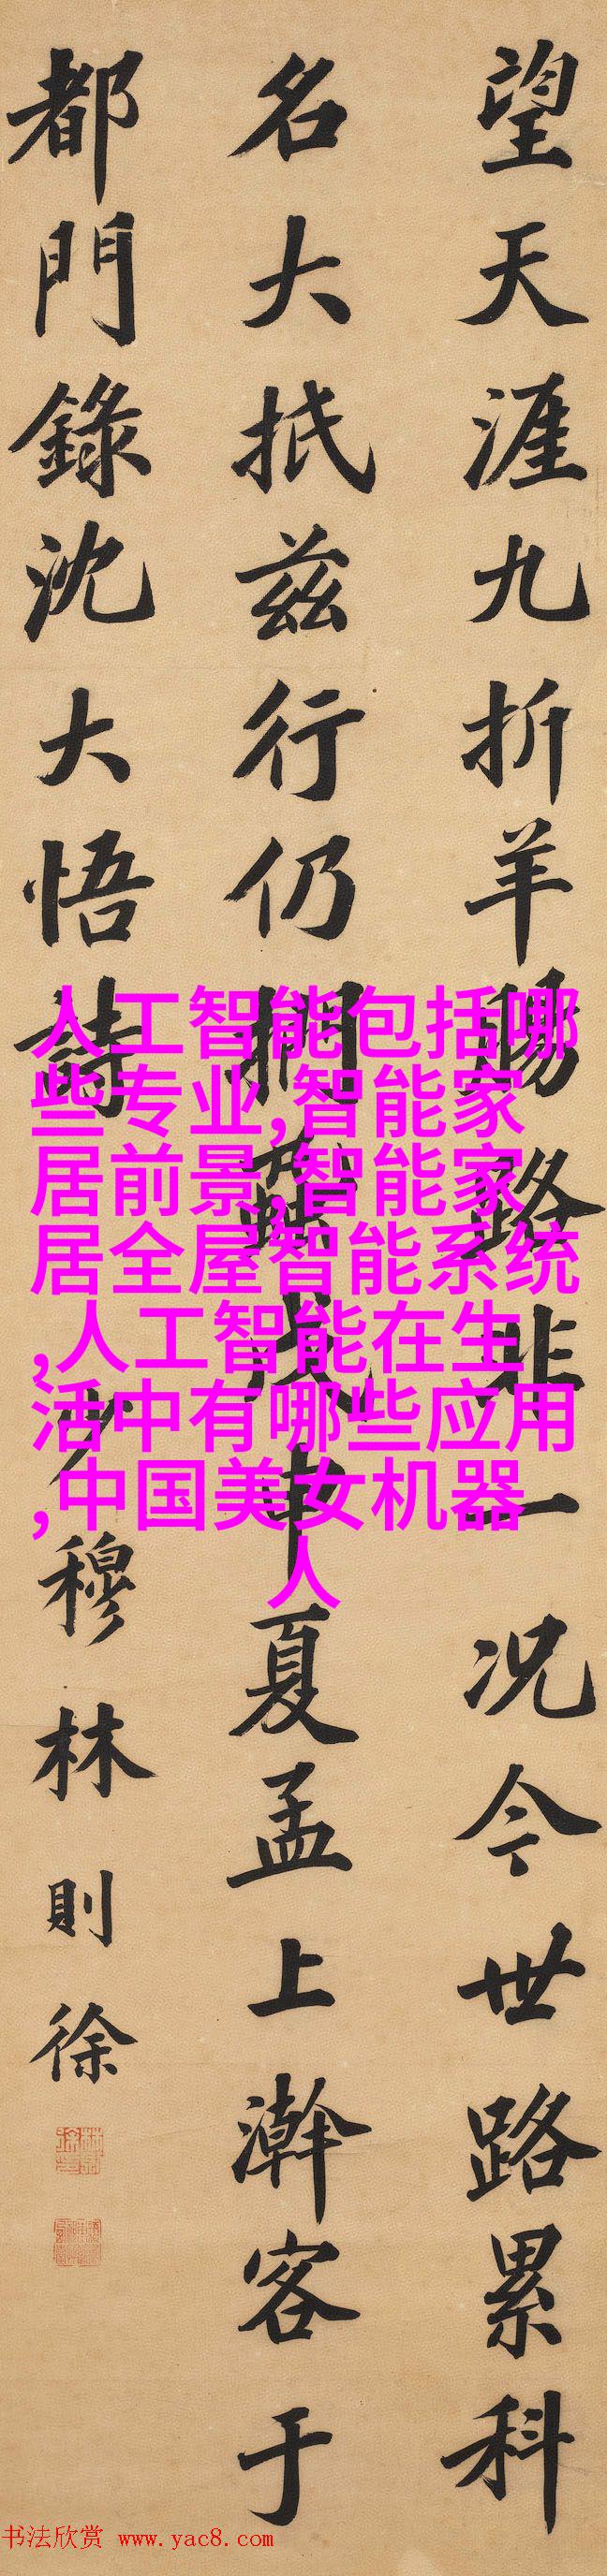 望天涯九折羊腸路非一况今世路累科
名大抵兹行仍戊申夏孟上澣客于
都門錄沈大悟詩少穆林則徐
人工智能包括哪
些专业,智能家
居前景,智能家
居全屋智能系统
,人工智能在生
活中有哪些应用
,中国美女机器
人
书法欣赏 www.yac8.com